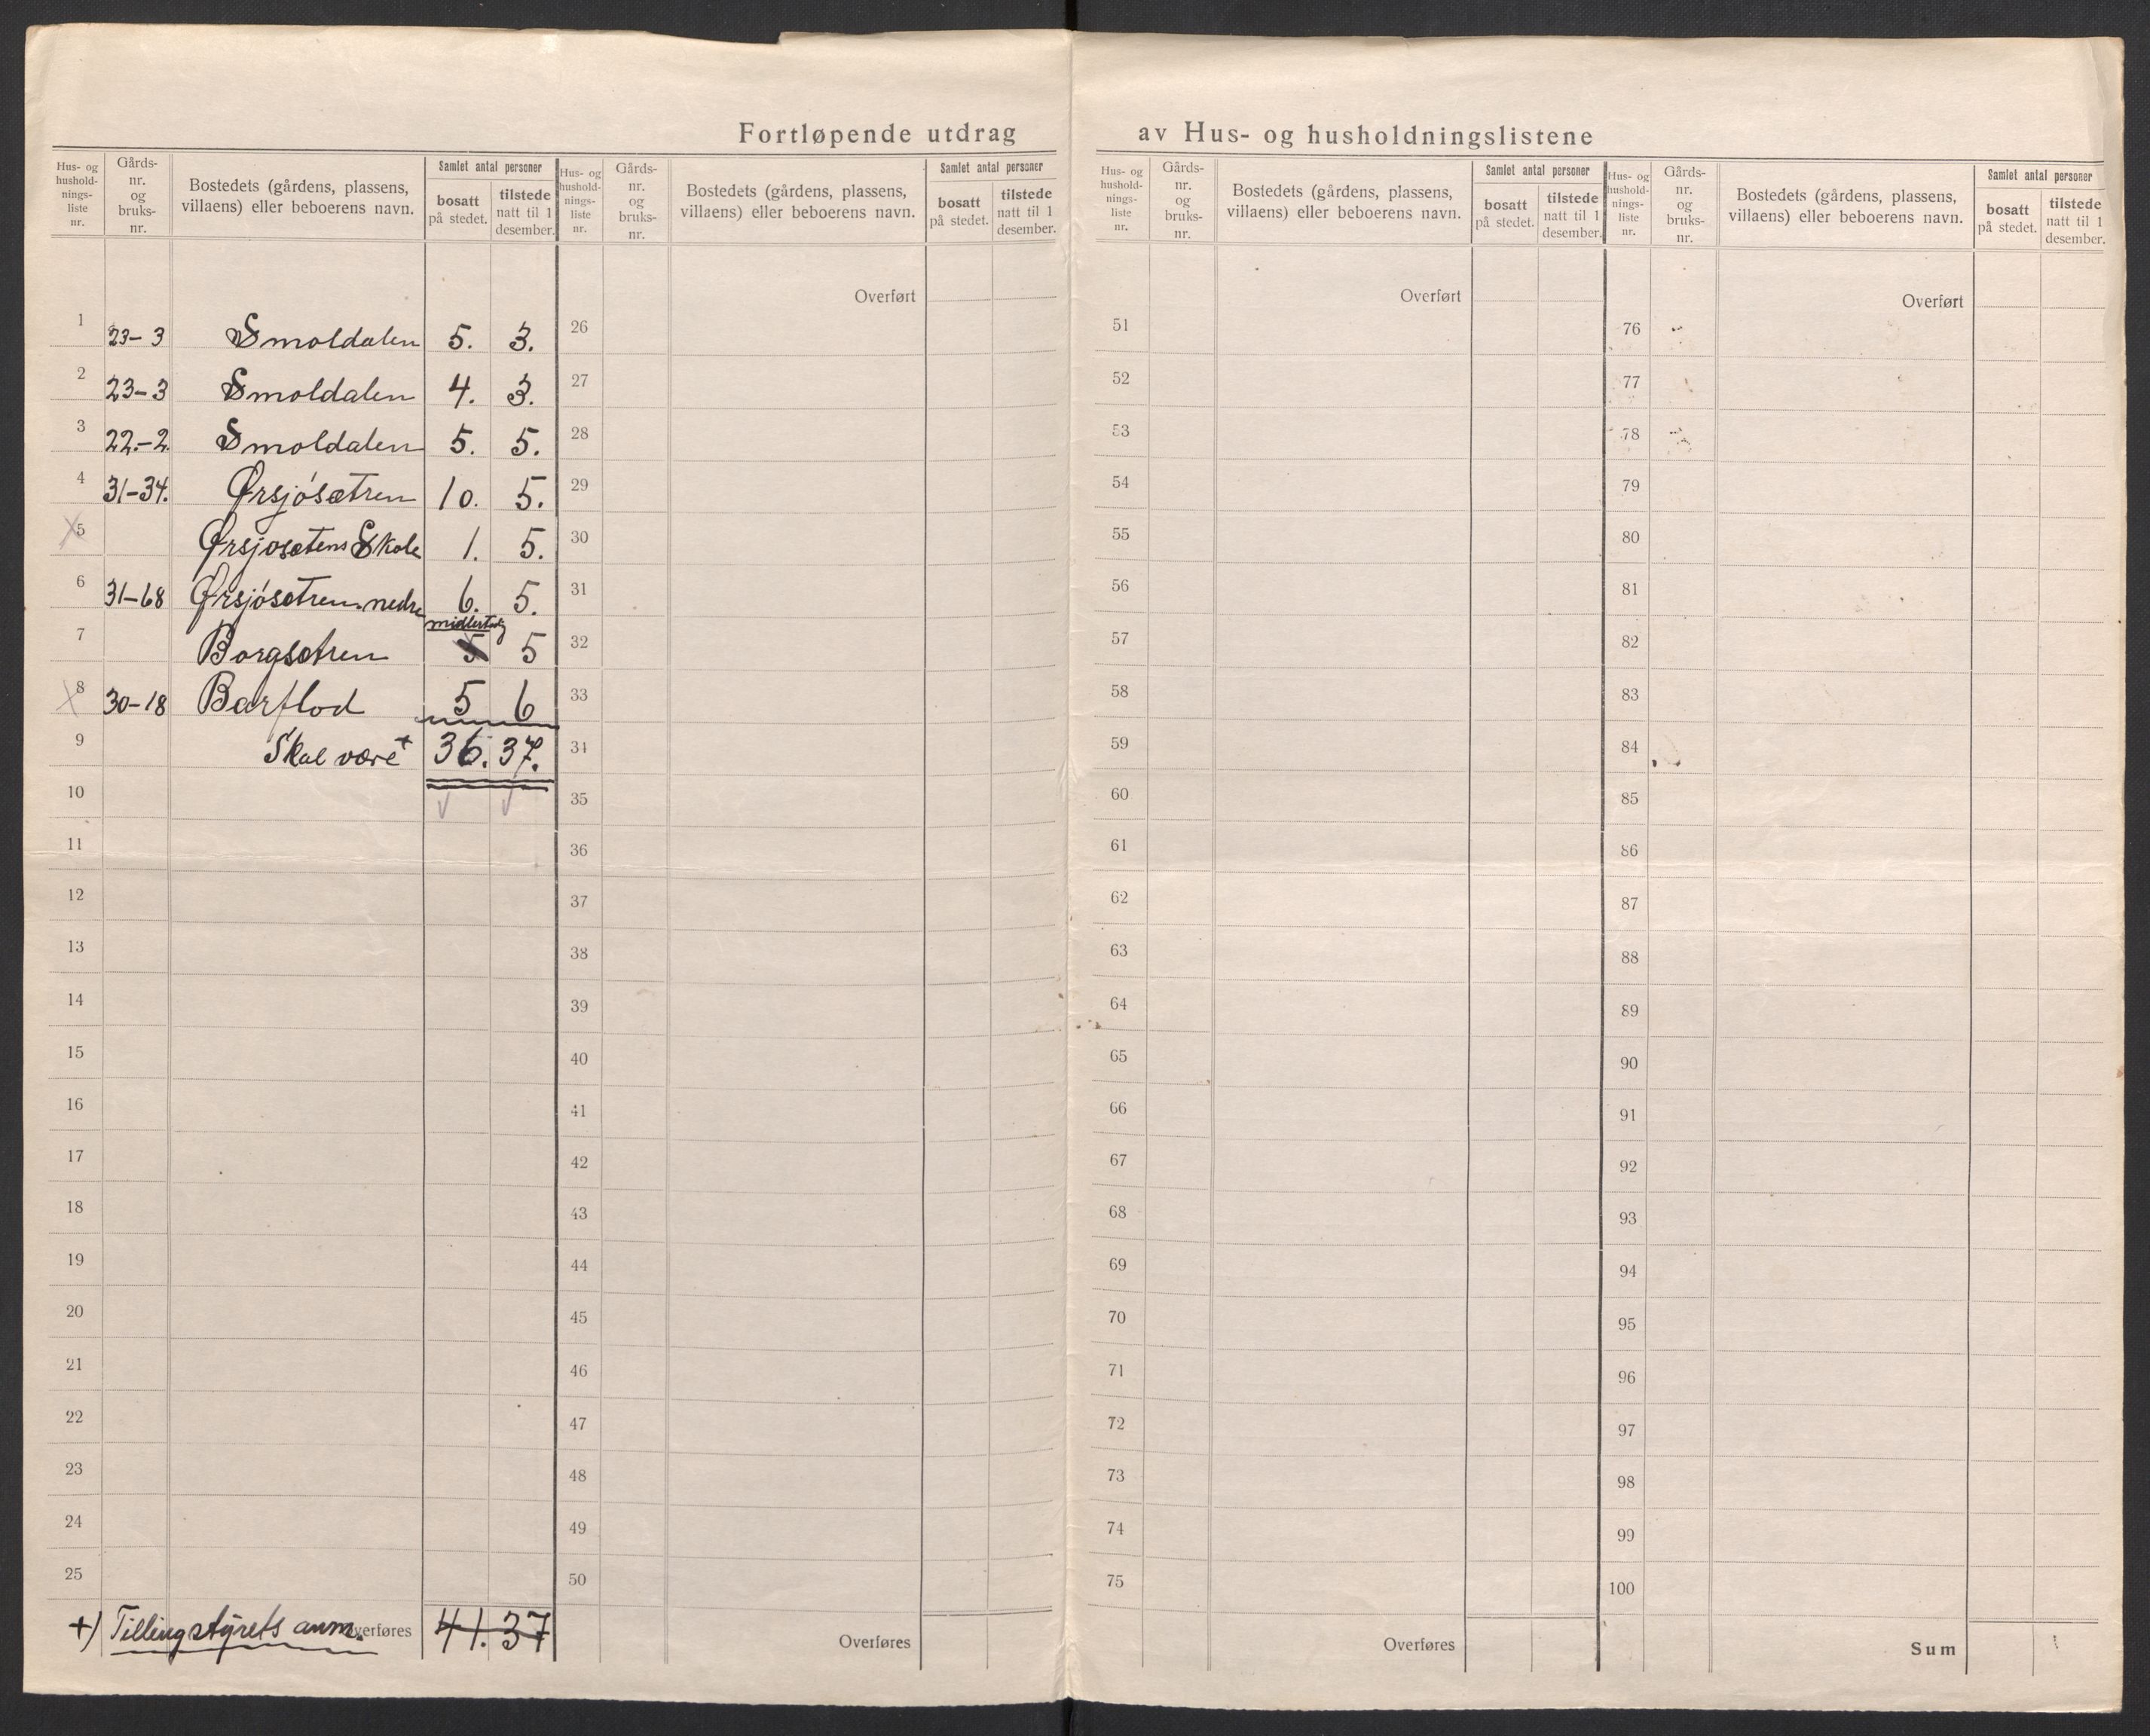 Fortløpende utdrag av Hus- og husholdningslistene
Hus- og hushold-nings-liste nr. | Gårds-nr. og bruks-nr. | Bostedets (gårdens, plassens, villaens) eller beboerens navn. | Samlet antal personer | bosatt på stedet. | tilstede natt til 1 desember.
1 23-3 Smoldalen 5. 3.
2 23-3 Smoldalen 4. 3.
3 22.-2. Smoldalen 5. 5.
4 31-34. Ørsjósætren 10. 5.
X5 Ørsjosætens Skole 1. 5.
6 31-68 Ørsjósætren nedre 6. 5.
midlertidig
7 Borgsætren 5 5
X8 30-18 Barflod 5 6
9 Skal være + 36. 37.
10
11
12
13
14
15
16
17
18
19
20
21
22
23
24
25
+) Tillingstyrets anm. Overføres 41. 37
Hus- og hushold-nings-liste nr. | Gårds-nr. og bruks-nr. | Bostedets (gårdens, plassens, villaens) eller beboerens navn. | Samlet antal personer | bosatt på stedet. | tilstede natt til 1 desember.
Overført
26
27
28
29
30
31
32
33
34
35
36
37
38
39
40
41
42
43
44
45
46
47
48
49
50
Overføres
Hus- og hushold-nings-liste nr. | Gårds-nr. og bruks-nr. | Bostedets (gårdens, plassens, villaens) eller beboerens navn. | Samlet antal personer | bosatt på stedet. | tilstede natt til 1 desember.
Overført
51
52
53
54
55
56
57
58
59
60
61
62
63
64
65
66
67
68
69
70
71
72
73
74
75
Overføres
Hus- og hushold-nings-liste nr. | Gårds-nr. og bruks-nr. | Bostedets (gårdens, plassens, villaens) eller beboerens navn. | Samlet antal personer | bosatt på stedet. | tilstede natt til 1 desember.
Overført
76
77
78
79
80
81
82
83
84
85
86
87
88
89
90
91
92
93
94
95
96
97
98
99
100
Sum